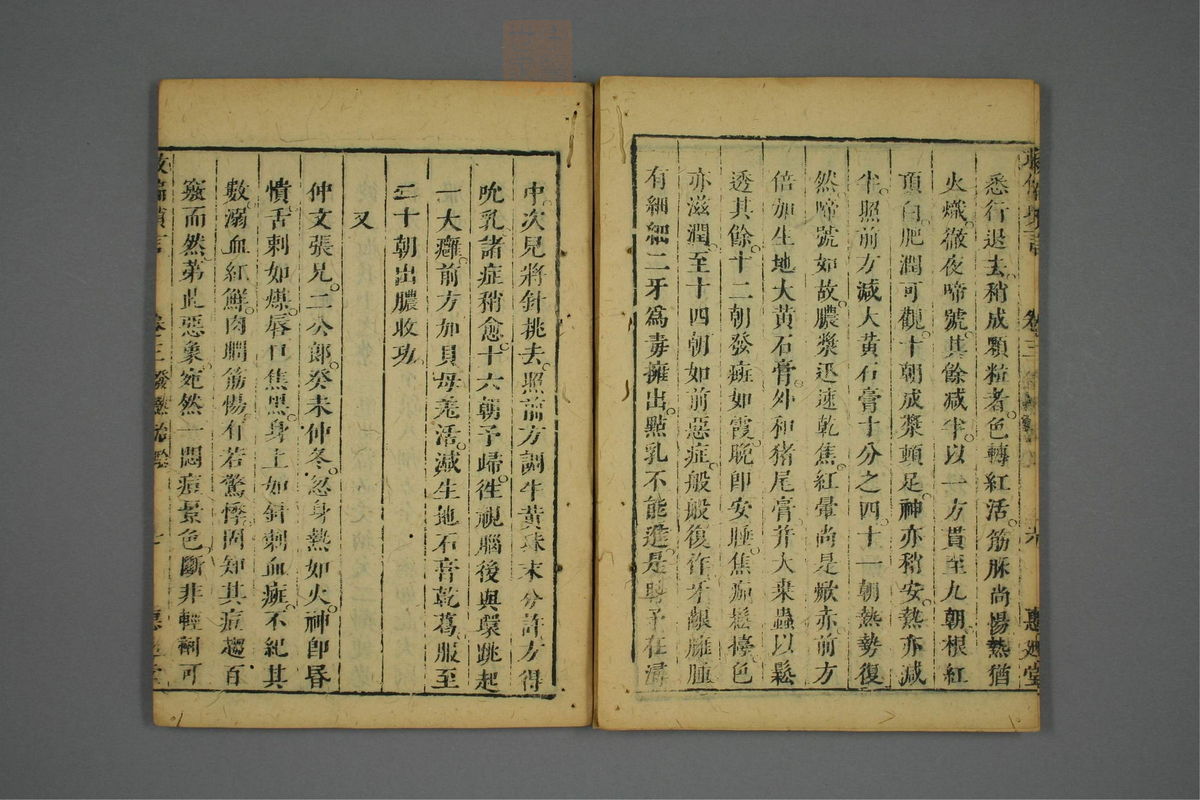 悉行退去。稍成顆粒者。色轉紅活。筋脉尚惕。熱猶
火熾。徹夜啼號。其餘減半。以一方貫至九朝。根紅
頂白。肥潤可觀。十朝成漿頭足。神亦稍安。熱亦減
半。照前方減大黃石膏十分之四。十一朝熱勢復
然。啼號如故。膿漿迅速乾焦。紅暈尚是焮赤。前方
倍加生地大黃石膏。外和猪尾膏。并大桑蟲以鬆
透其餘。十二朝發疿如霞。晚即安睡。焦痂鬆擡。色
亦滋潤。至十四朝如前惡症。般般復作。牙齦臃腫
有細細二牙爲毒擁出。點乳不能進。是時予在潯
中。次兒將針挑去。照前方調牛黃珠末分許。方得
吮乳。諸症稍愈。十六朝予歸。徃視腦後與環跳起
一大癰。前方加貝母羌活。減生地石膏乾葛。服至
二十朝出膿收功
又
仲文張兄。二公郎。癸未仲冬。忽身熱如火。神即昏
憒。舌刺如煤。唇口焦黑。身上如針刺血疿。不紀其
數。溺血紅鮮。肉瞤筋惕。有若驚悸。固知其痘。趨百
竅而然。第此惡象。宛然一悶痘景色。斷非輕劑可